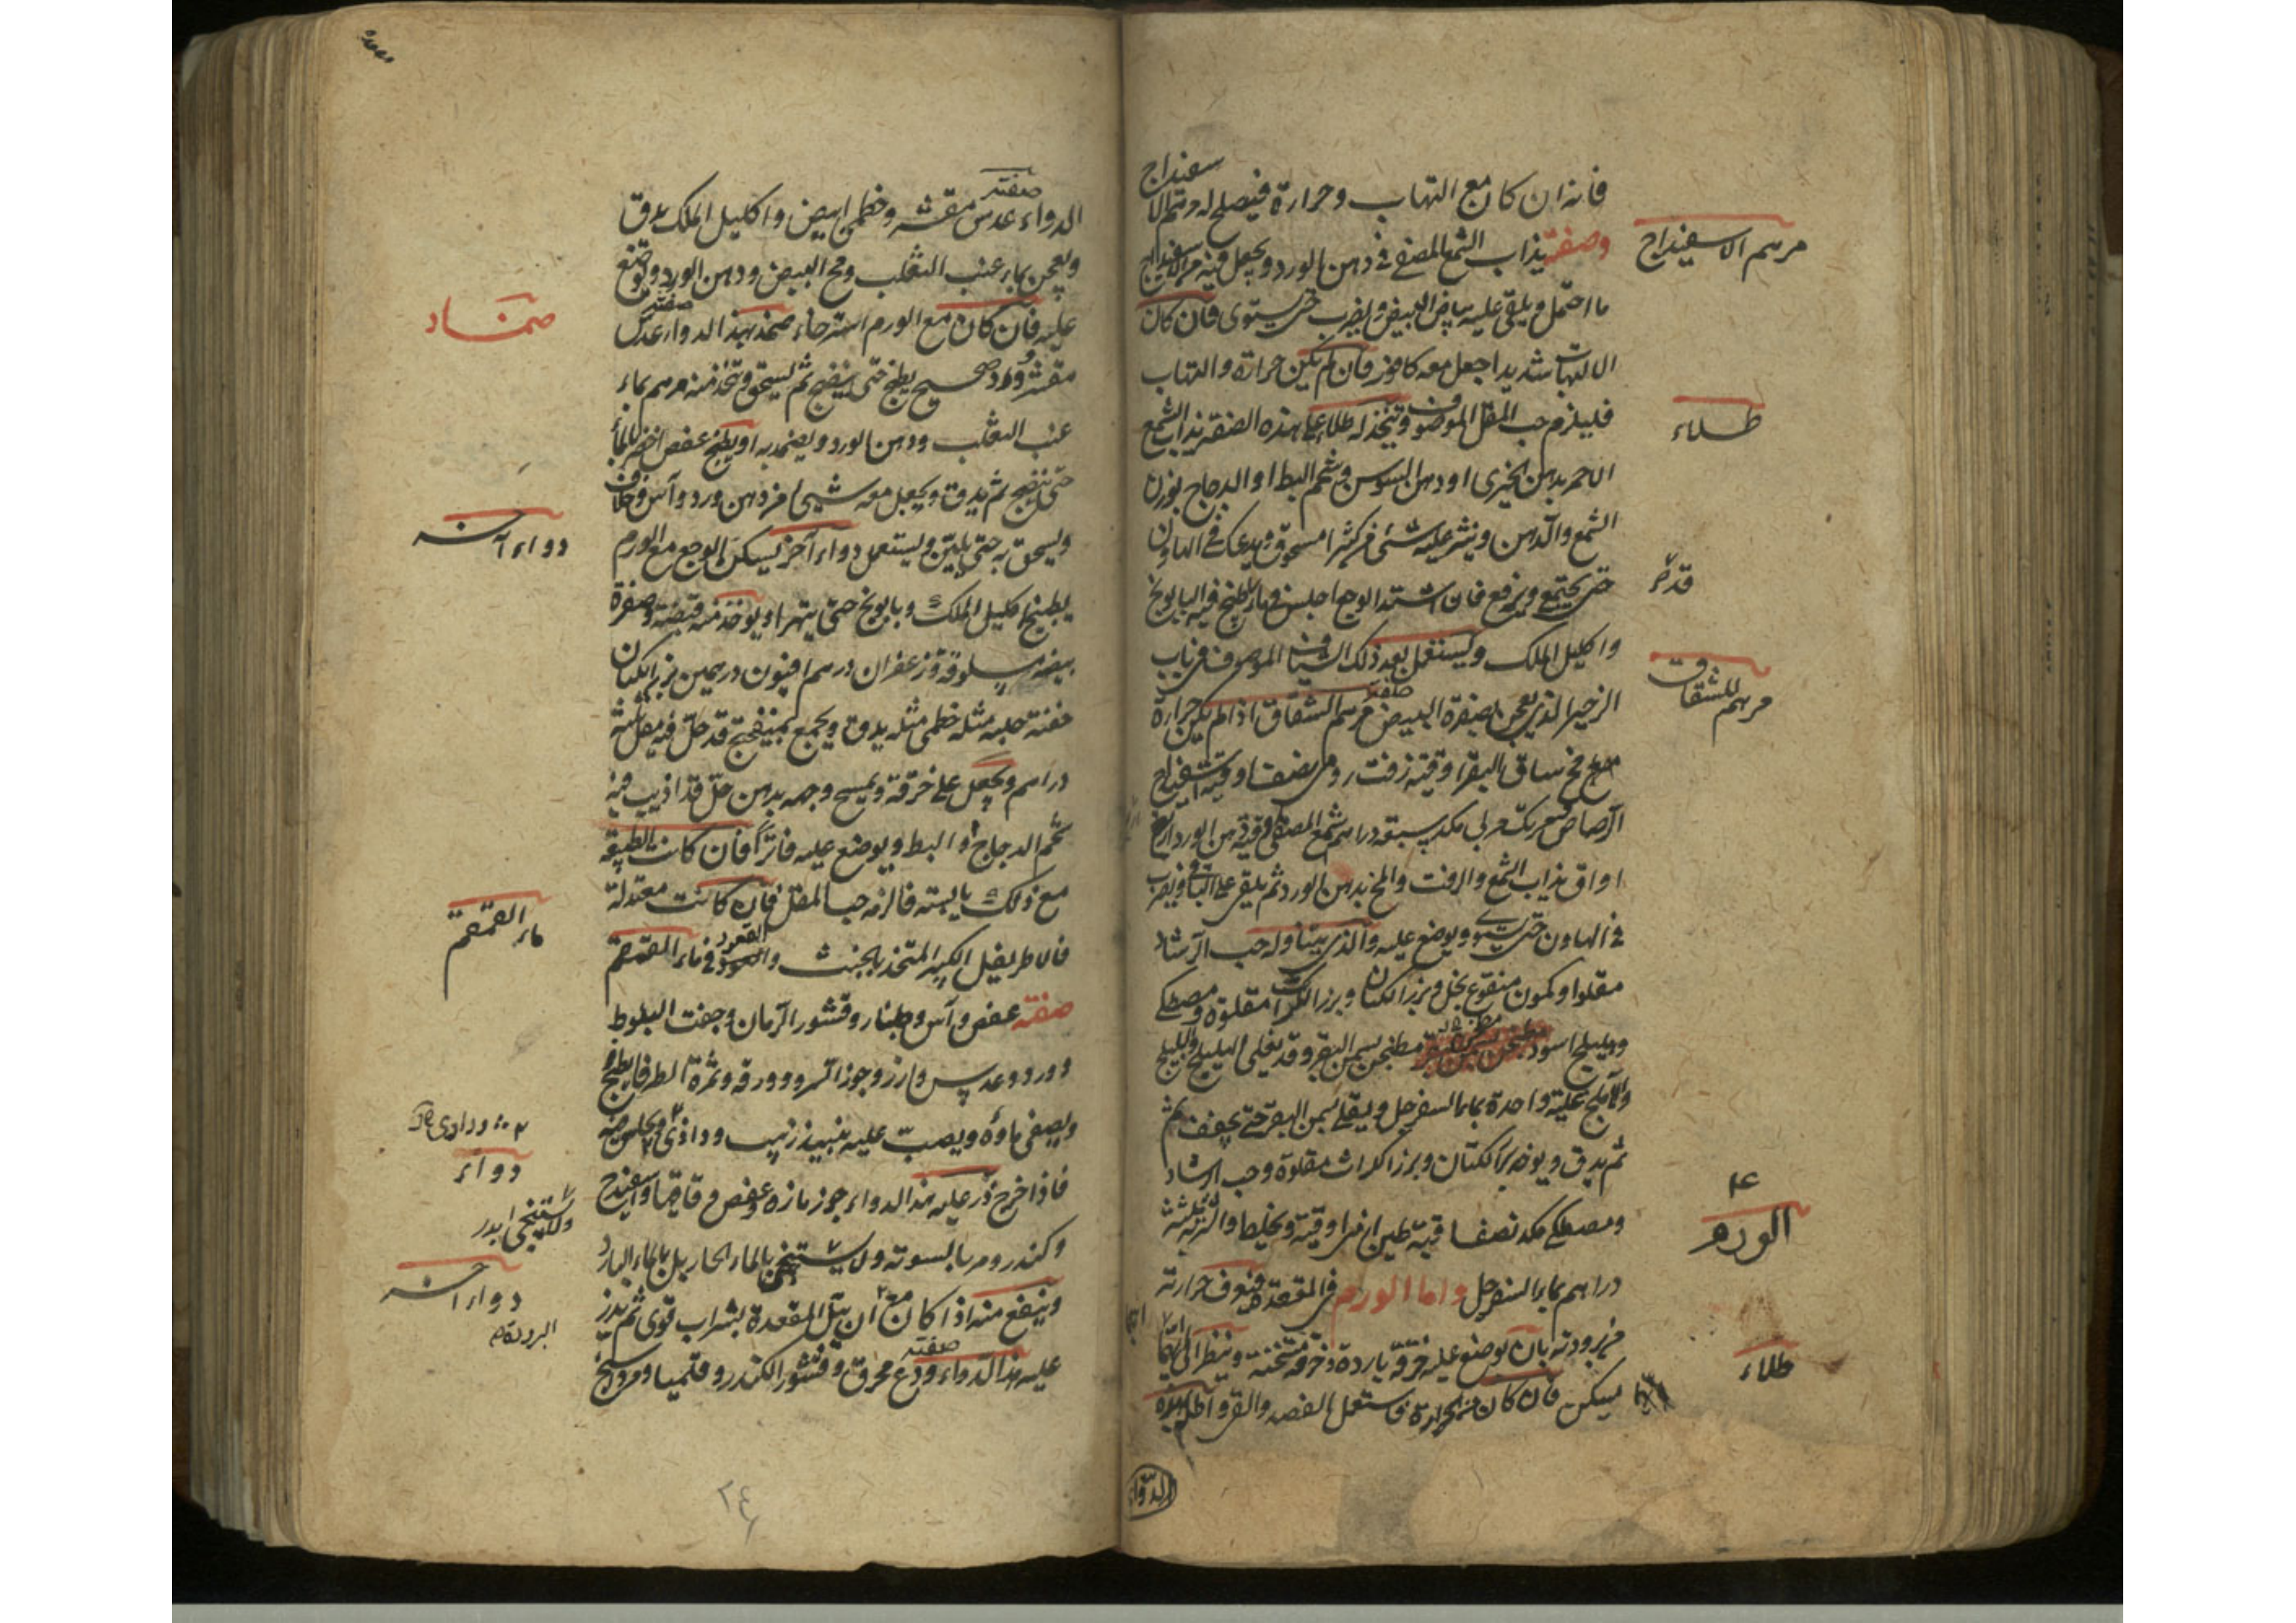 سفيداج
فانه ان كان مع التهاب وحرارة فيصلح له مرهم الا
مرهم الاسفيداج
وصفته يذاب الشمع المصفى في دهن الورد ويجعل فيه من الاسفيداج
ما احتمل ويلقى عليه بياض البيض ويضرب حتى يستوى فان كان
الالتهاب شديدا اجعل معه كافور فان لم يكن حرارة والتهاب
طلاء
فليلزم حب المقل الموصوف ويتخذ له طلاء على هذه الصفة يذاب الشمع
الاحمر بدهن الخيرى او دهن السوسن وشحم البط او الدجاج بوزن
الشمع والدهن وينثر عليه شئ من كثيرا مسحوق ويدعك في الهاون
حتى يجتمع ويرفع فان اشتد الوجع اجلس في ماء طبخ فيه البابونج
واكليل الملك ويستعمل بعد ذلك الشياف الموصوف في باب
مرهم للشقاق
الزحير الذى يعجن بصفرة البيض مرهم الشقاق اذا لم يكن حرارة
صفته
مخ ساق البقر اوقية زفت رومى نصف اوقية اسفيداج
الرصاص مربى مكد سبعة دراهم شمع المصفى اوقية دهن الورد اربع
اواق يذاب الشمع والزفت والمخ بدهن الورد ثم يلقى على الباقى ويضرب
في الهاون حتى يستوى ويوضع عليه والذى يتناوله حب الرشاد
مقلوا وكمون منقوع بخل وبزر الكتان وبزر الكراث مقلوة ومصطكى
وهليلج اسود مطجن بسمن البقر وقد يغلى الهليلج والبليلج
والاملج غلية واحدة بماء السفرجل ويقلى بسمن البقر حتى يجفف ثم
ثم يدق ويوخذ بزر الكتان وبزر الكراث مقلوة وحب الرشاد
ومصطكى مكد نصف اوقية طين ارمنى اوقية ويخلط والشربة ثلثة
الورم
دراهم بماء السفرجل واما الورم في المقعدة فتعرف حرارته
طلاء
من برودته بان يوضع عليه خرقة باردة وخرقة مسخنة وينظر الى ايهما
يسكن فان كان من الحرارة فاستعمل الفصد والقئ واطله بهذا
الدواء
صفته
الدواء عدس مقشر وخطمى ابيض واكليل الملك يدق
ويعجن بماء عنب الثعلب ومح البيض ودهن الورد ويوضع
ضماد
عليه فان كان مع الورم استرخاء ضمد بهذا الدواء عدس
صفته
مقشر وورد صحيح يطبخ حتى ينضج ثم يسحق ويتخذ منه مرهم بماء
عنب الثعلب ودهن الورد ويضمد به او يطبخ عفص اخضر بالماء
حتى ينضج ثم يدق ويجعل معه شيئا من دهن ورد وآس وخلاف
دواء آخر
ويسحق به حتى يلين ويستعمل دواء آخر يسكن الوجع مع الورم
يطبخ اكليل الملك وبابونج حتى يتهرا ويوخذ منه قبضة وصفرة
بيضه مسلوقة وزعفران درهم افيون درهمين بزر الكتان
حفنة حلبه مثله خطمى مثله يدق ويجمع بميفختج قد حل فيه مقل ثلثة
دراهم ويجعل على خرقة ويمسح وجهه بدهن حل قد اذيب فيه
شحم الدجاج او البط ويوضع عليه فاترا فان كانت الطبيعة
مع ذلك يابسته فالزمه حب المقل فان كانت معتدلة
ماء القمقم
فالاطريفل الكبير المتخذ بالخبث والقعود في ماء القمقم
صفته عفص وآس وجلنار وقشور الرمان وجفت البلوط
وورد وعدس وارز وجوز السرو وورقه وثمرة الطرفا يطبخ
ويصفى ماؤه ويصب عليه نبيذ زبيب وداذى ويجلس فيه
دواء
فاذا خرج ذر عليه هذا الدواء جوز مازه وعفص واقاقيا واسفيداج
وكندر ومر بالسويه ولا يستنجى بالماء الحار بل بالماء البارد
دواء آخر
وينفع منه اذا كان معه ان يبل المقعدة بشراب قوى ثم يذر
صفته
عليه هذا الدواء ودع محرق وقشور الكندر وقليميا ومرداسنج
٢٤